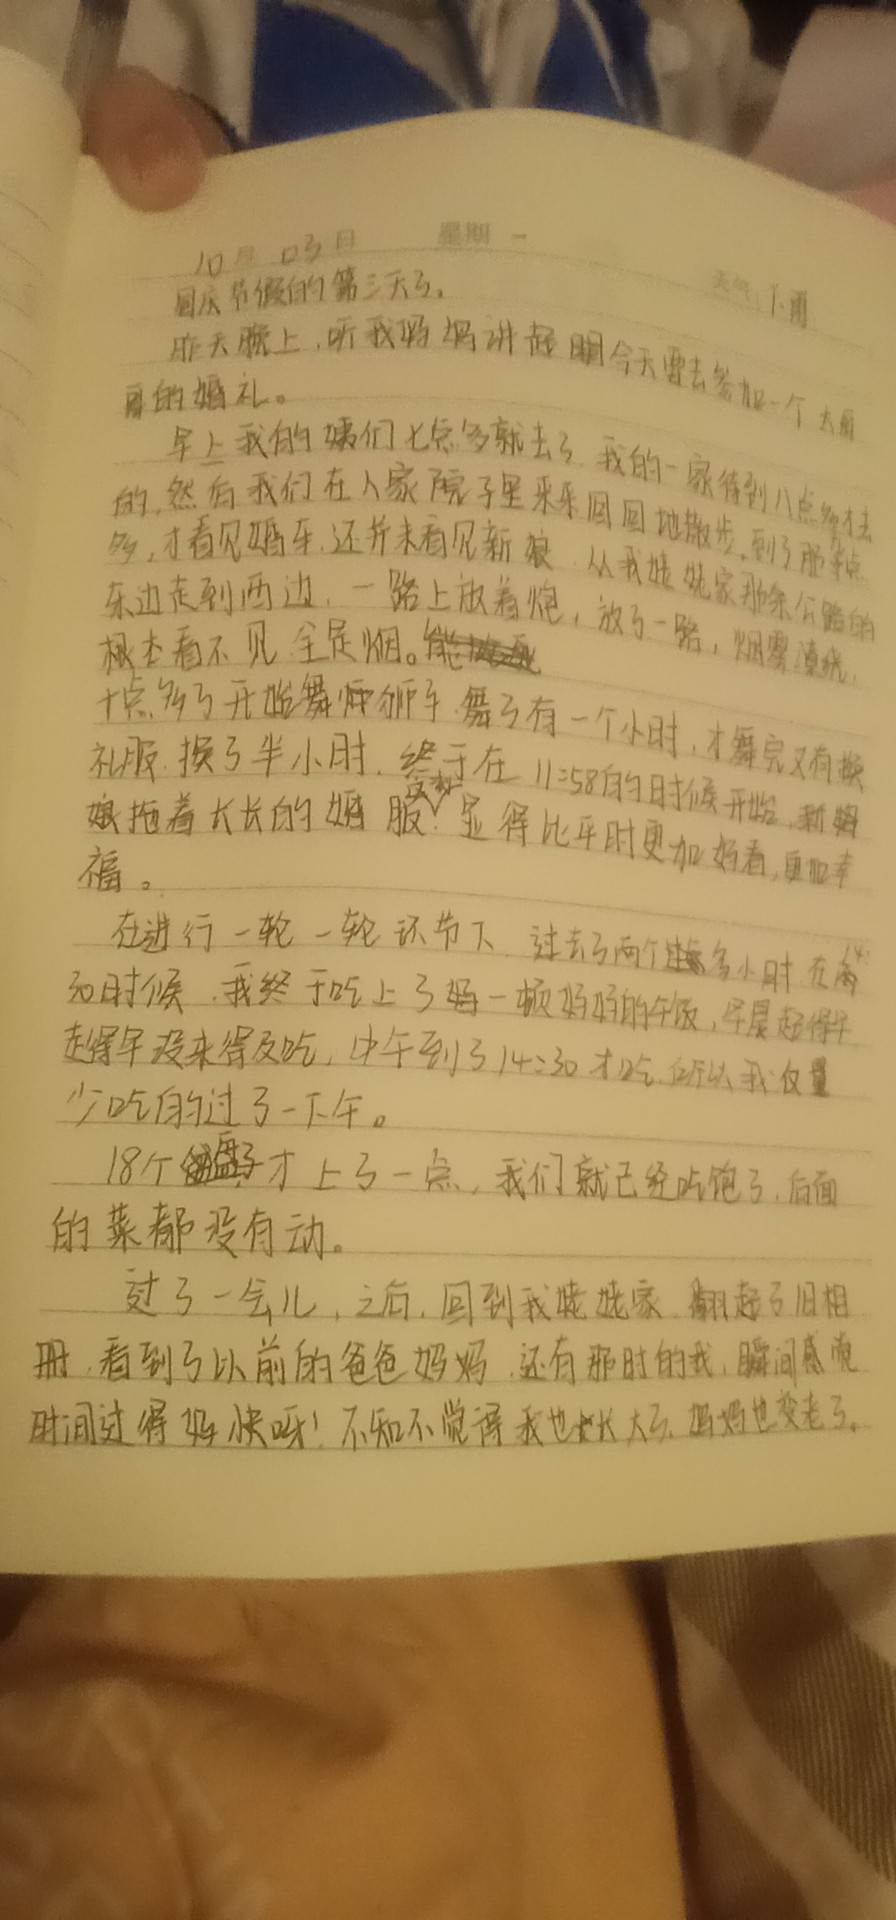 10月03日 星期一 天气 下雨
国庆节假的第三天了。
昨天晚上,听我妈妈讲起 今天要去参加一个大
的婚礼。
早上我的姨们七点多就去了 我的一家待到八点多才去
的,然后我们在人家院子里来来回回地散步,到了 点
多,才看见婚车,还并未看见新娘 从我姥姥家那条公路的
东边走到西边,一路上放着炮,放了一路,烟雾
根本看不见 全是烟。
十点多了开始舞 狮子 舞了有一个小时,才舞完又有换
礼服 换了半小时,终于在 11:58的时候开始,新
娘拖着长长的婚服 显得比平时更加好看,更加幸
福。
在进行一轮一轮环节下 过去了两个多小时 在 14:
30时候,我终于吃上了 一顿好好的午饭,早晨起得早
走得早没来得及吃,中午到了14:30才吃 所以我仅量
少吃的过了一下午。
18个盘子才上了一点,我们就已经吃饱了,后面
的菜都没有动。
过了一会儿,之后,回到我姥姥家 翻起了旧相
册,看到了以前的爸爸妈妈,还有那时的我,瞬间感觉
时间过得好快呀!不知不觉得我也长大了,妈妈也变老了。